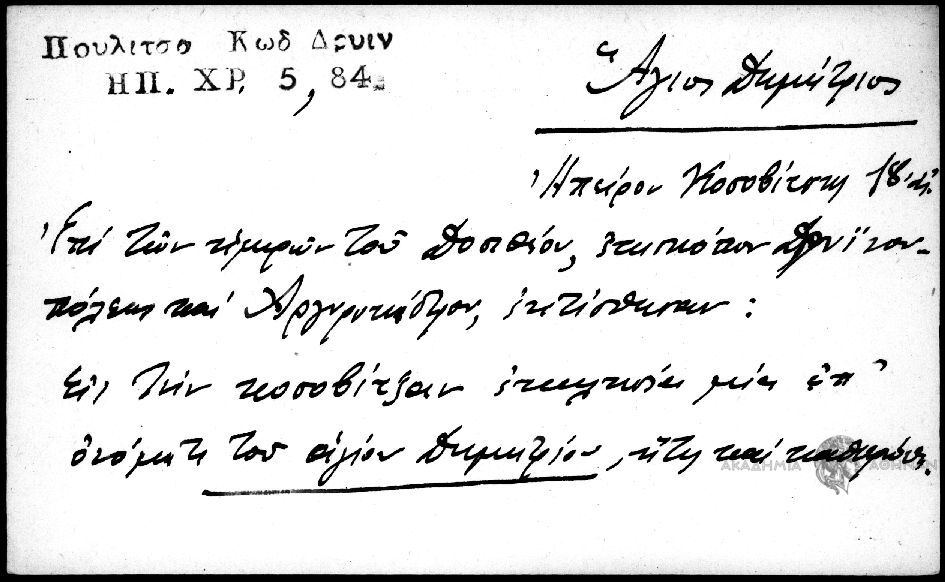 Πουλιτσα Κωδ Δρυιν
ΗΠ. ΧΡ. 5, 84.
Ἅγιος Δημήτριος
Ἠπείρου Κοσοβίτσης 18
Ἐπὶ τῶν ἡμερῶν τοῦ Δοσιθέου, ἐπισκόπου Δρυϊνου-
πόλεως καὶ Ἀργυροκάστρου, ἐκτίσθησαν :
Εἰς τὴν κοσοβίτζαν ἐκκλησία μία ἐπ'
ὀνόματι τοῦ ἁγίου Δημητρίου, ἥτις καὶ
ΑΚΑΔΗΜΙΑ ΑΘΗΝΩΝ